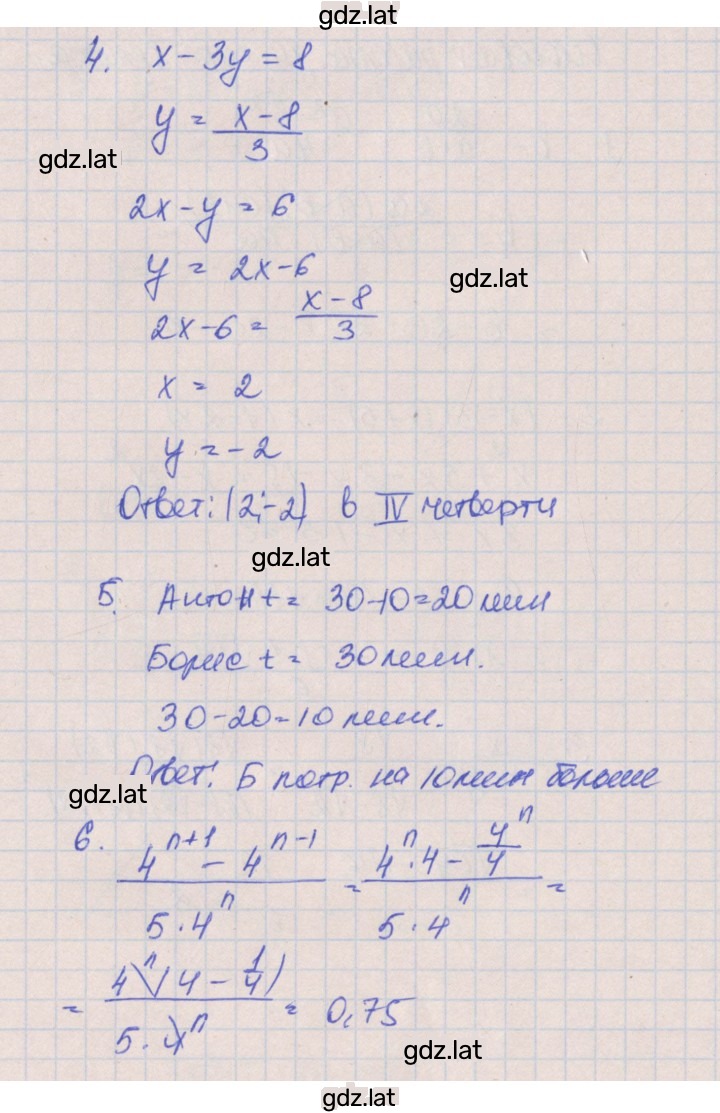 gdz.lat
4. x - 3y = 8
y = (x - 8)/3
gdz.lat
2x - y = 6
y = 2x - 6
gdz.lat
2x - 6 = (x - 8)/3
x = 2
y = -2
Ответ: (2; -2) в IV четверти
gdz.lat
5. Антон t = 30-10=20 мин
Борис t = 30 мин.
30-20=10 мин.
Ответ: Б потр. на 10 мин больше
gdz.lat
6. (4^(n+1) - 4^(n-1))/(5·4^n) = (4^n·4 - 4^n/4)/(5·4^n) =
= 4^n(4 - 1/4)/(5·4^n) = 0,75
gdz.lat
gdz.lat